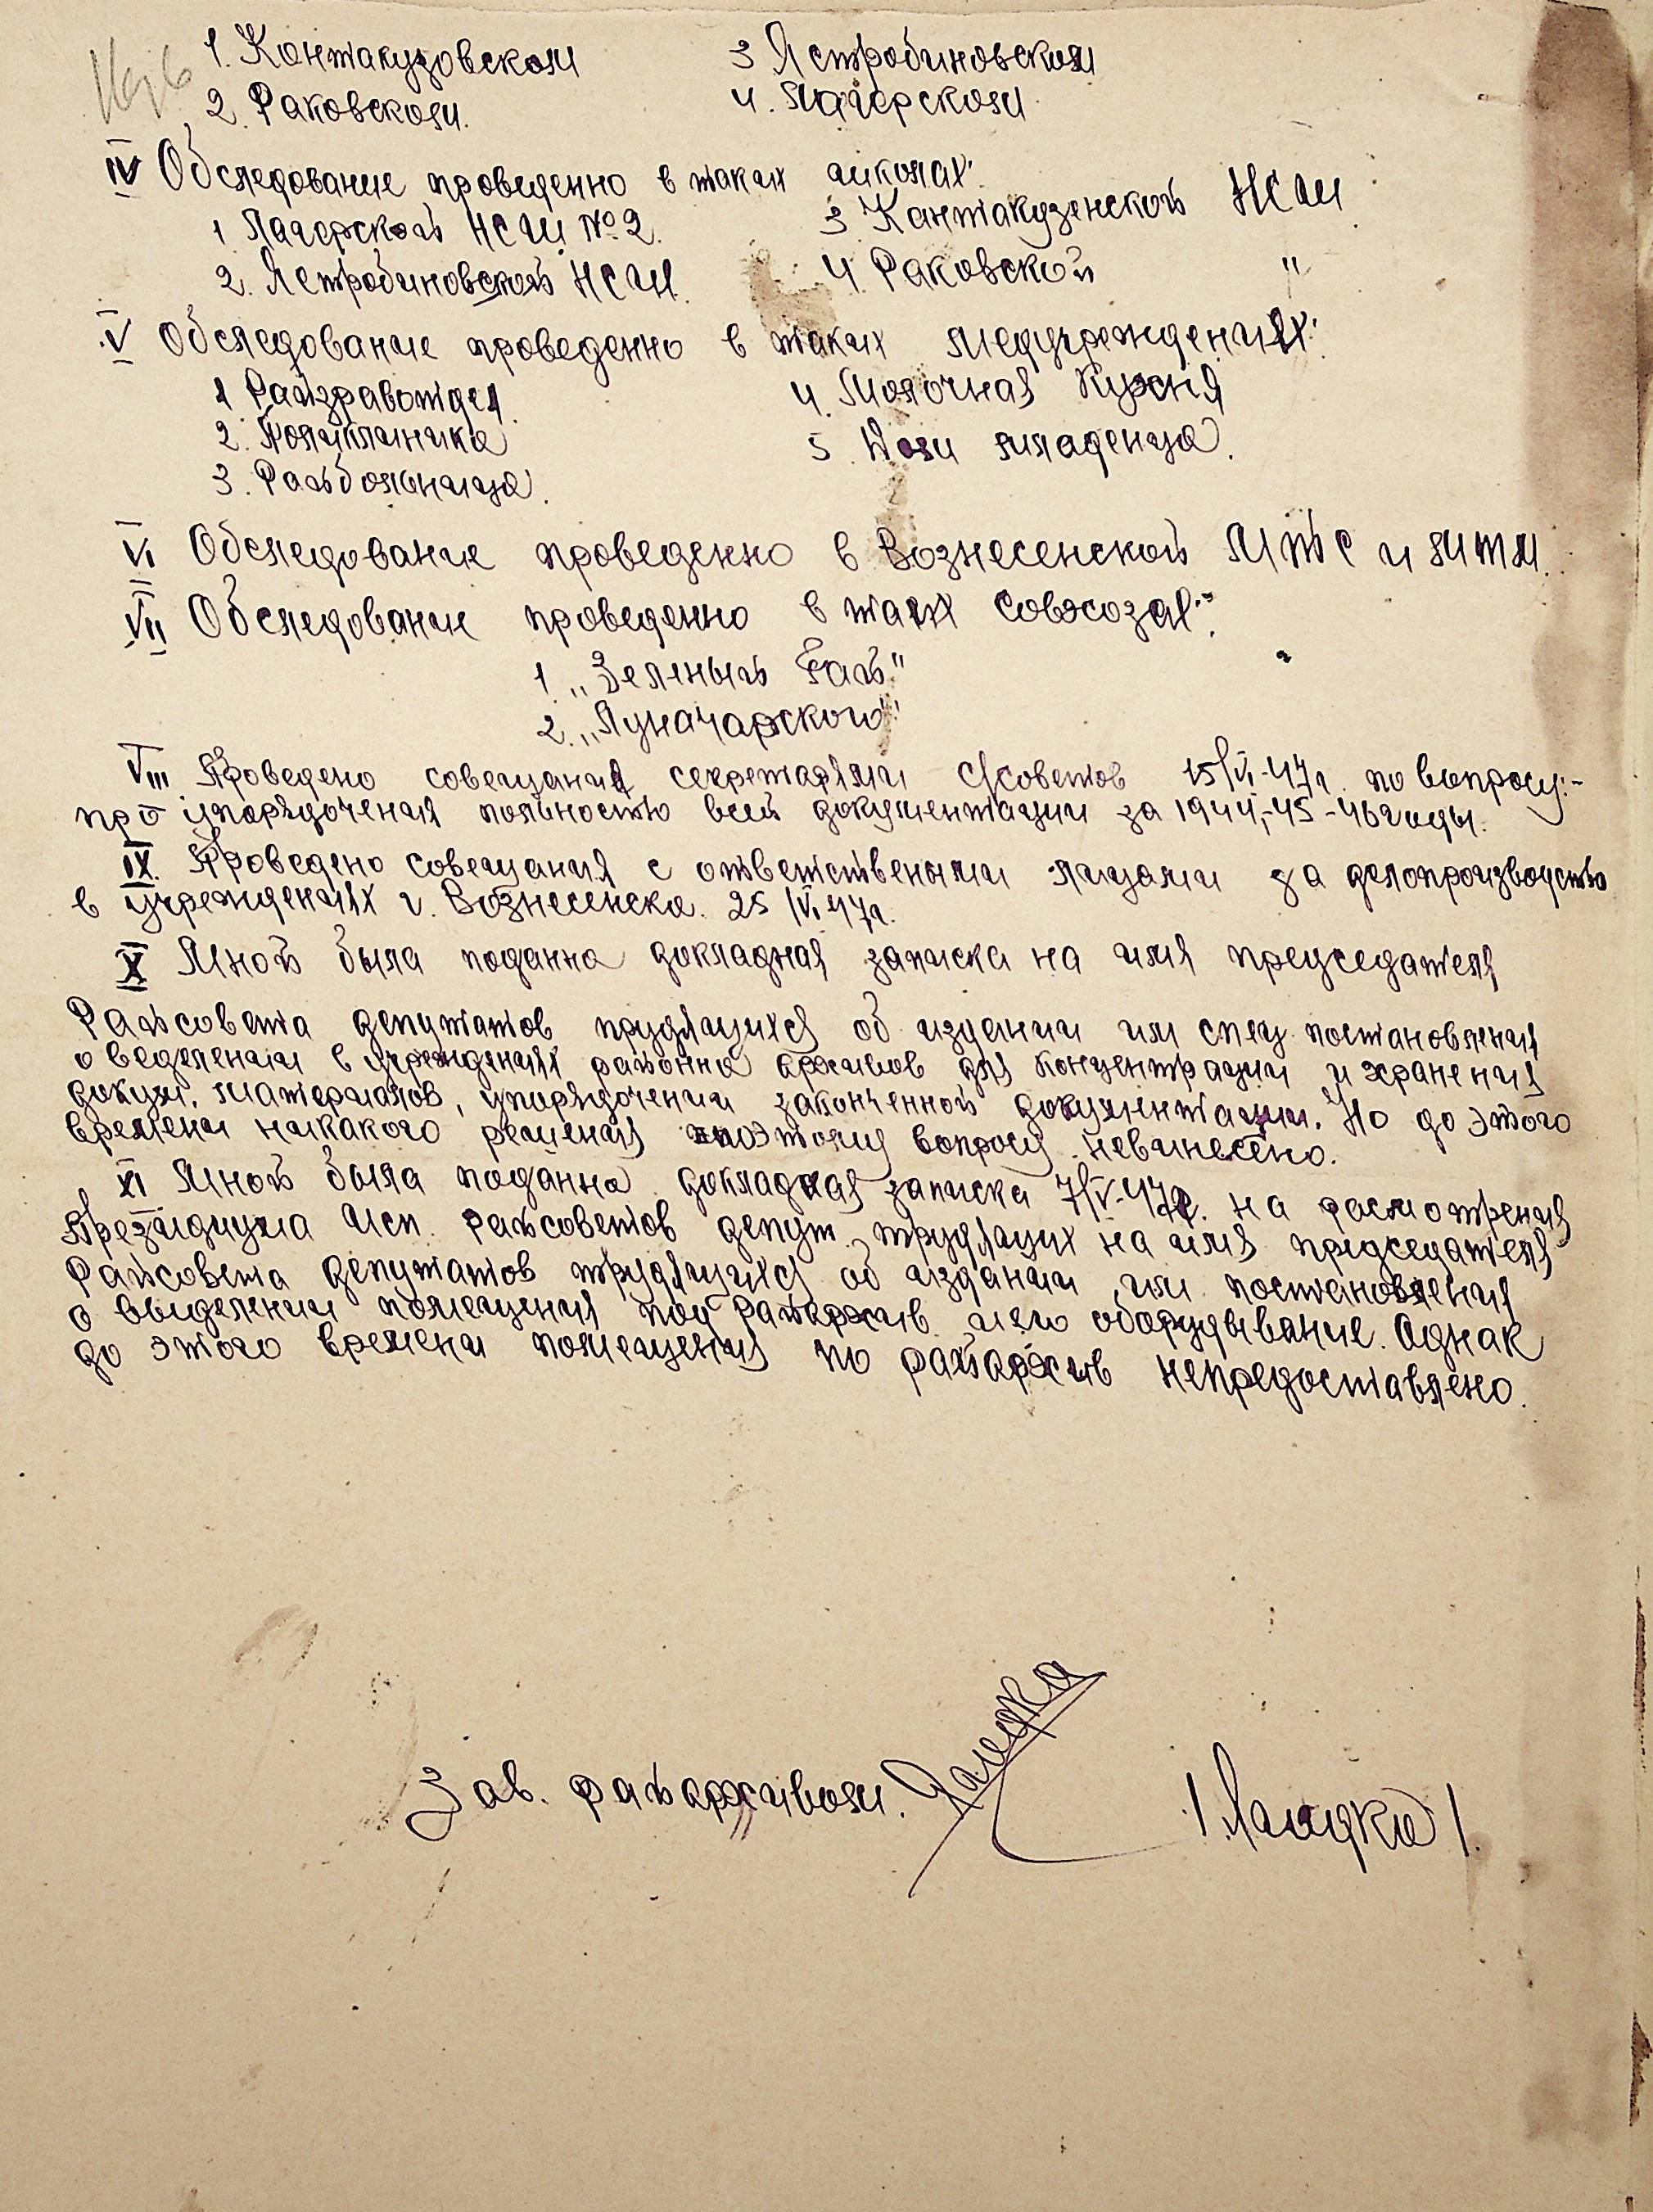 1. Контакузовском 3 Ястробиновском
2. Раковском. 4. Лагерском
IV Обследование проведенно в таких школах:
1 Лагерской НСШ №2. 3 Кантакузенской НСШ
2. Ястробиновской НСШ. 4. Раковской "
V Обследование проведенно в таких медучреждениях:
1 Райздравотдел 4. Молочная Кухня
2. Поликлиника 5. Дом младенца.
3. Райбольница.
VI Обследование проведенно в Вознесенской МТС и МТМ.
VII Обследование проведенно в таких совхозах:
1 „Зеленый Гай"
2. „Луначарского"
VIII Проведено совещания секретарями с/советов 15/VI-47г. по вопросу:-
про упорядочения полностю всей документации за 1944,-45-46 годы.
IX. Проведено совещания с ответствеными лицами за делопроизводство
в учреждениях г. Вознесенска. 25/VI 47г.
X Мной была поданна докладная записка на имя председателя
Райсовета депутатов трудящихся об издании им спец. постановления
о веделении в учреждениях района архивов для концентрации и хранения
докум. материалов, упорядочении законченной документации. Но до этого
времени никакого решения поэтому вопросу невынесено.
XI Мной была поданна докладная записка 7/V-47г. на расмотрения
Президиума Исп. райсоветов депут. трудящих на имя председателя
Райсовета депутатов трудящихся об издании им постановления
о выделении помещения под райархив и его оборудывание. Однак
до этого времени помещения по райархив непредоставлено.
Зав. райархивом. /Галицка/.